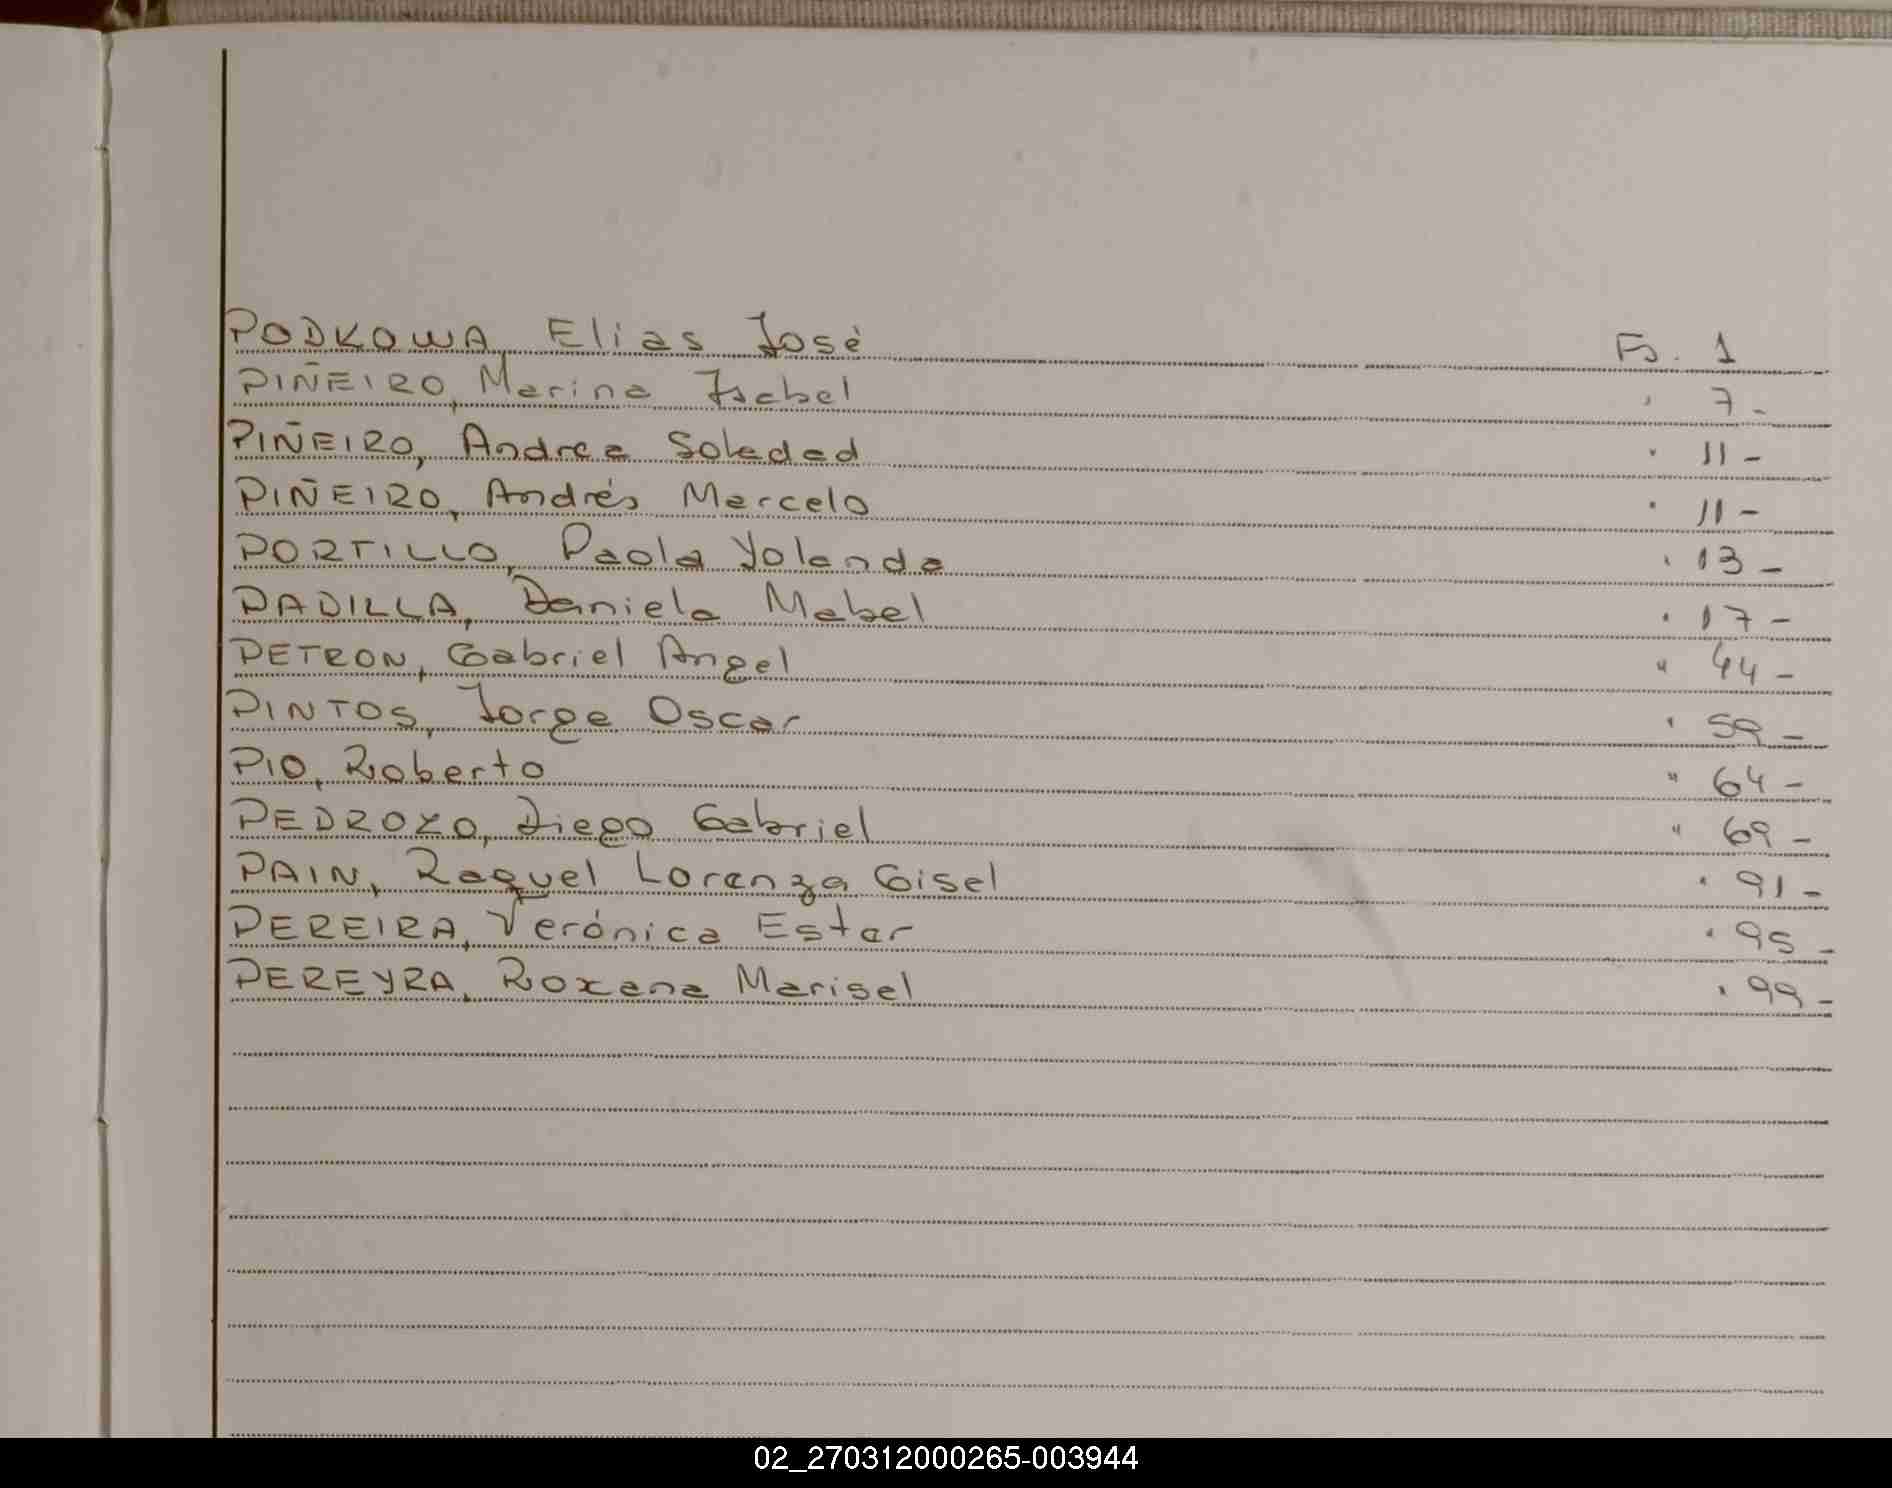 PODKOWA, Elias José Fs. 1
PIÑEIRO, Marina Isabel " 7-
PIÑEIRO, Andrea Soledad " 11-
PIÑEIRO, Andrés Marcelo " 11-
PORTILLO, Paola Yolanda " 13-
PADILLA, Daniela Mabel " 17-
PETRON, Gabriel Angel " 44-
PINTOS, Jorge Oscar " 59-
PIO, Roberto " 64-
PEDROZO, Diego Gabriel " 69-
PAIN, Raquel Lorenza Gisel " 91-
PEREIRA, Verónica Ester " 95-
PEREYRA, Roxana Marisel " 99-
02_270312000265-003944